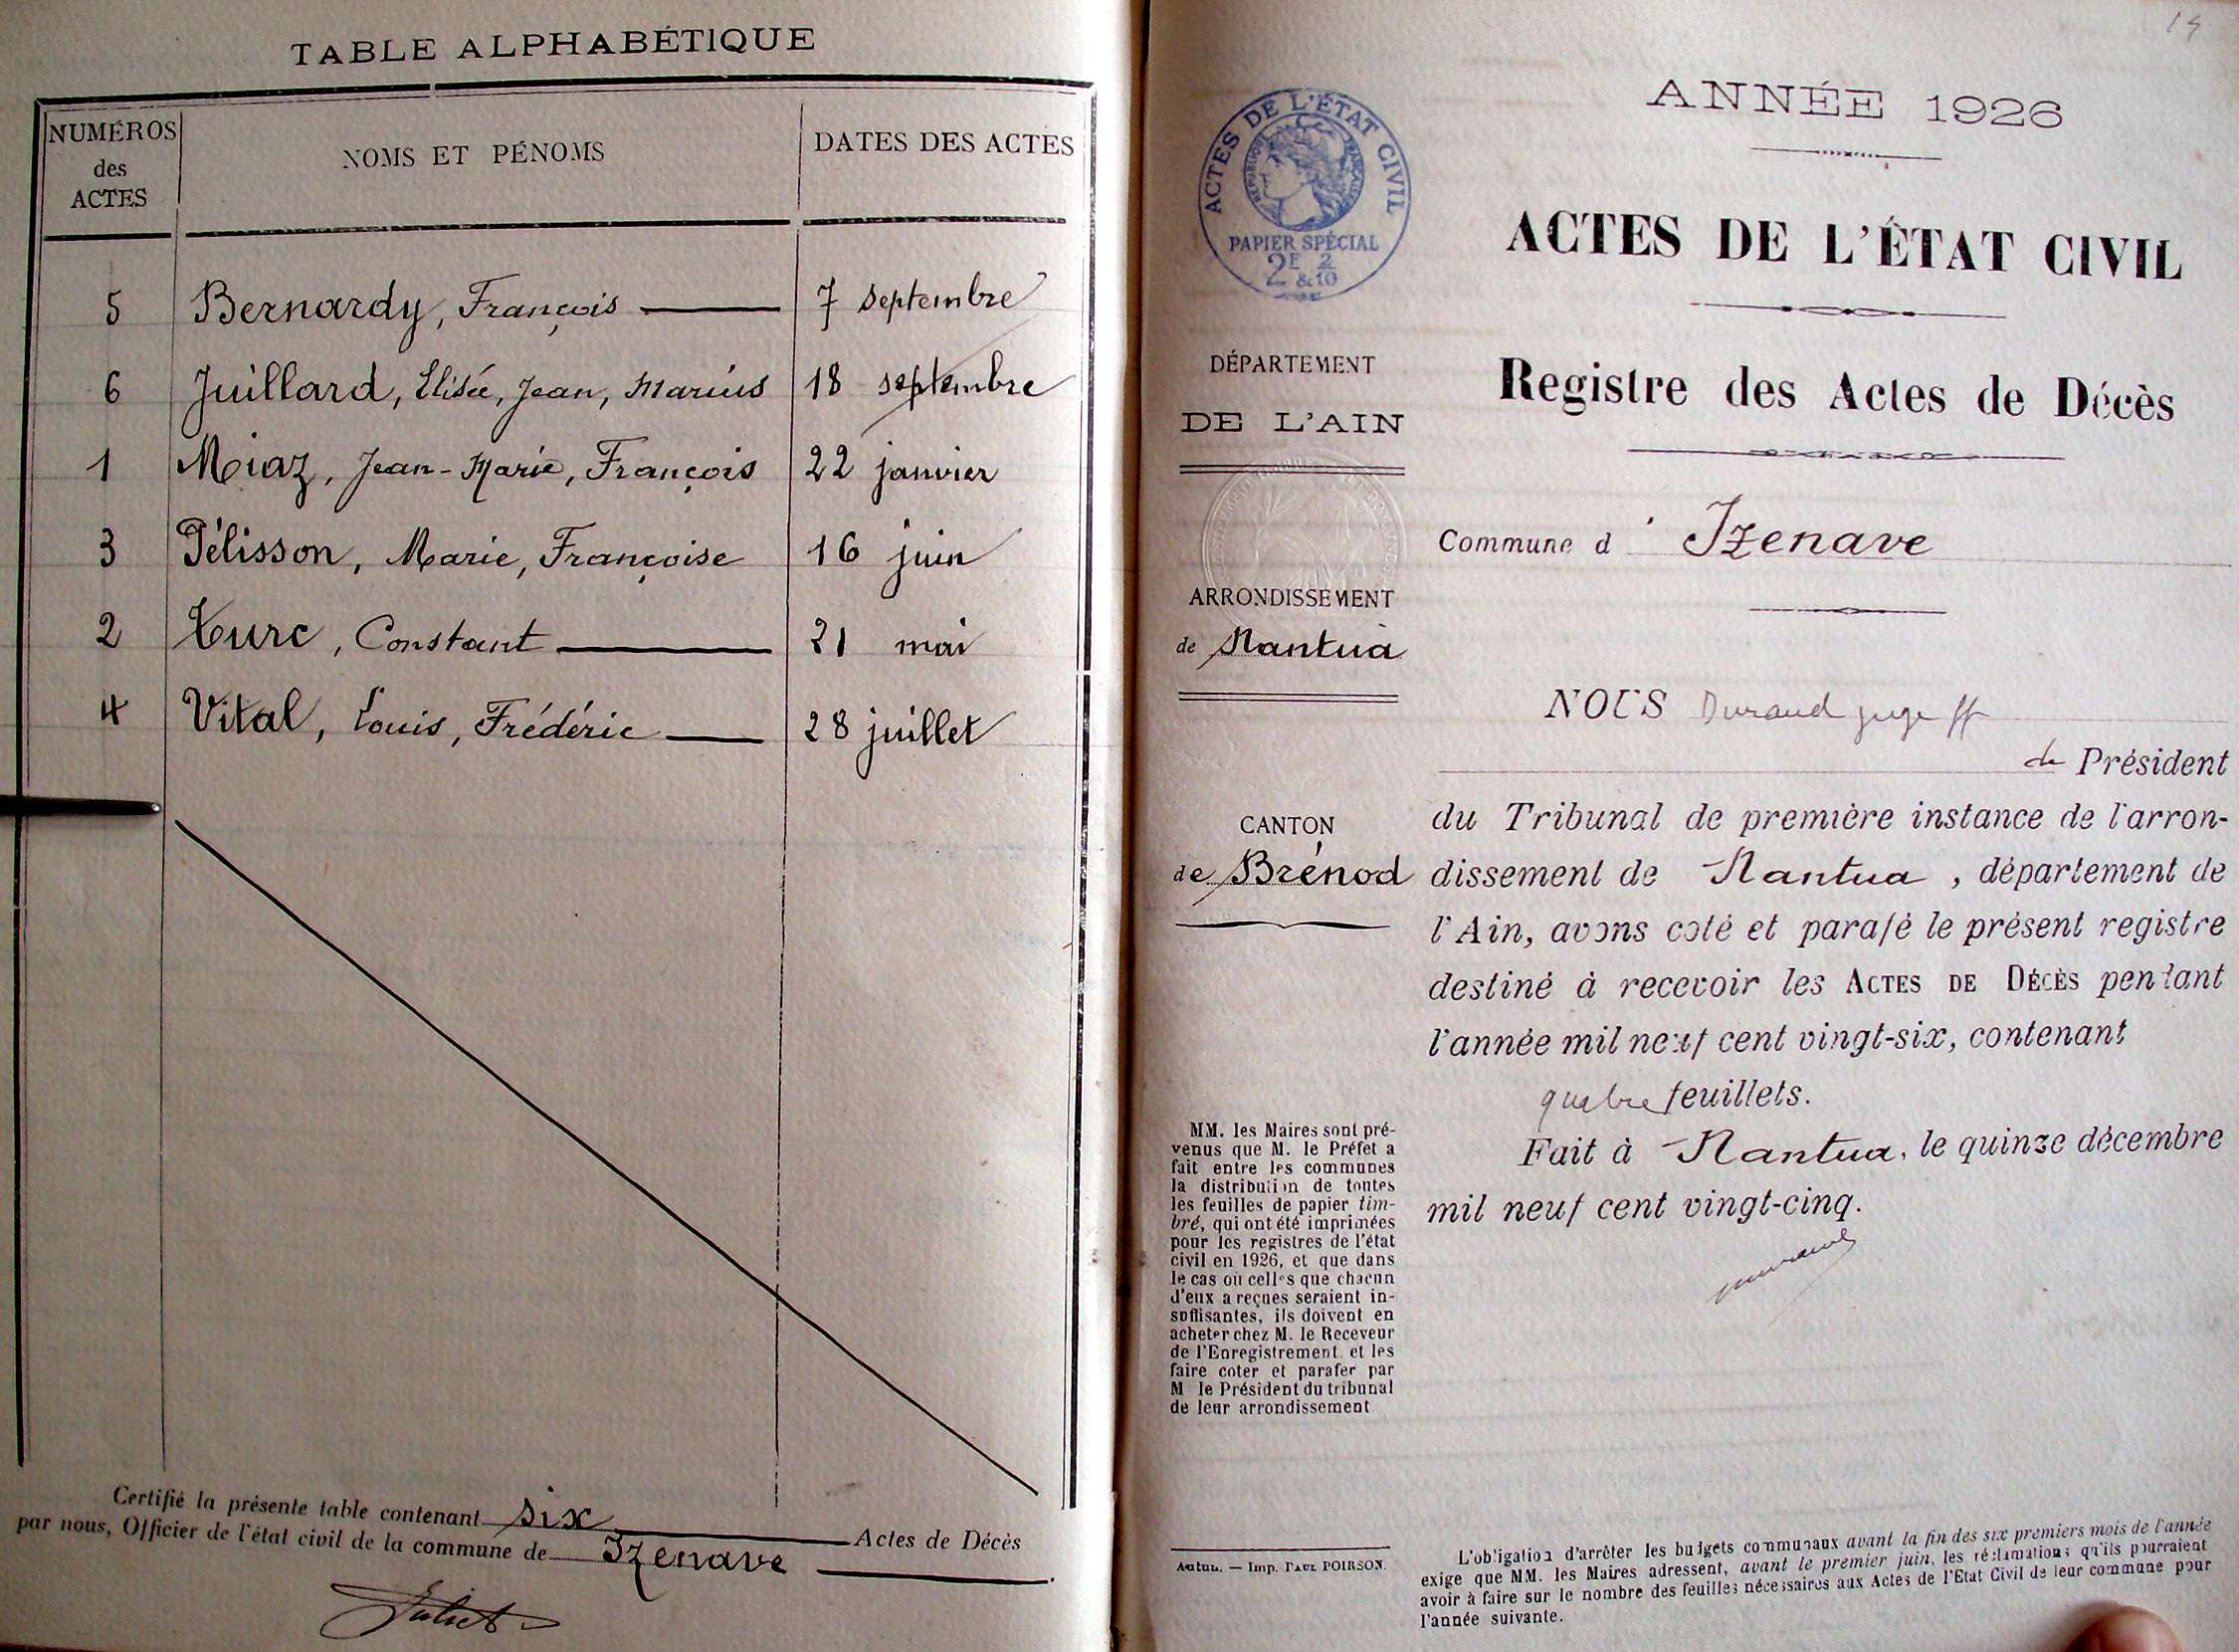 TABLE ALPHABÉTIQUE
NUMÉROS des ACTES
NOMS ET PÉNOMS
DATES DES ACTES
5 Bernardy, François 7 septembre
6 Juillard, Elisée, Jean, Marius 18 septembre
1 Miaz, Jean-Marie, François 22 janvier
3 Pélisson, Marie, Françoise 16 juin
2 Turc, Constant 21 mai
4 Vital, Louis, Frédéric 28 juillet
Certifié la présente table contenant six Actes de Décès
par nous, Officier de l'état civil de la commune de Izenave
19
ACTES DE L'ÉTAT CIVIL
RÉPUBLIQUE FRANÇAISE
PAPIER SPÉCIAL
2E 2
&10
DÉPARTEMENT
DE L'AIN
ARRONDISSEMENT
de Nantua
CANTON
de Brénod
MM. les Maires sont pré-
venus que M. le Préfet a
fait entre les communes
la distribution de toutes
les feuilles de papier tim-
bré, qui ont été imprimées
pour les registres de l'état
civil en 1926, et que dans
le cas où celles que chacun
d'eux a reçues seraient in-
suffisantes, ils doivent en
acheter chez M. le Receveur
de l'Enregistrement. et les
faire coter et parafer par
M le Président du tribunal
de leur arrondissement
Autun. — Imp. PAUL POIRSON.
ANNÉE 1926
ACTES DE L'ÉTAT CIVIL
Registre des Actes de Décès
Commune d' Izenave
NOUS Durand juge ff
de Président
du Tribunal de première instance de l'arron-
dissement de Nantua, département de
l'Ain, avons coté et parafé le présent registre
destiné à recevoir les ACTES DE DÉCÈS pendant
l'année mil neuf cent vingt-six, contenant
quatre feuillets.
Fait à Nantua, le quinze décembre
mil neuf cent vingt-cinq.
L'obligation d'arrêter les budgets communaux avant la fin des six premiers mois de l'année
exige que MM. les Maires adressent, avant le premier juin, les réclamations qu'ils pourraient
avoir à faire sur le nombre des feuilles nécessaires aux Actes de l'Etat Civil de leur commune pour
l'année suivante.